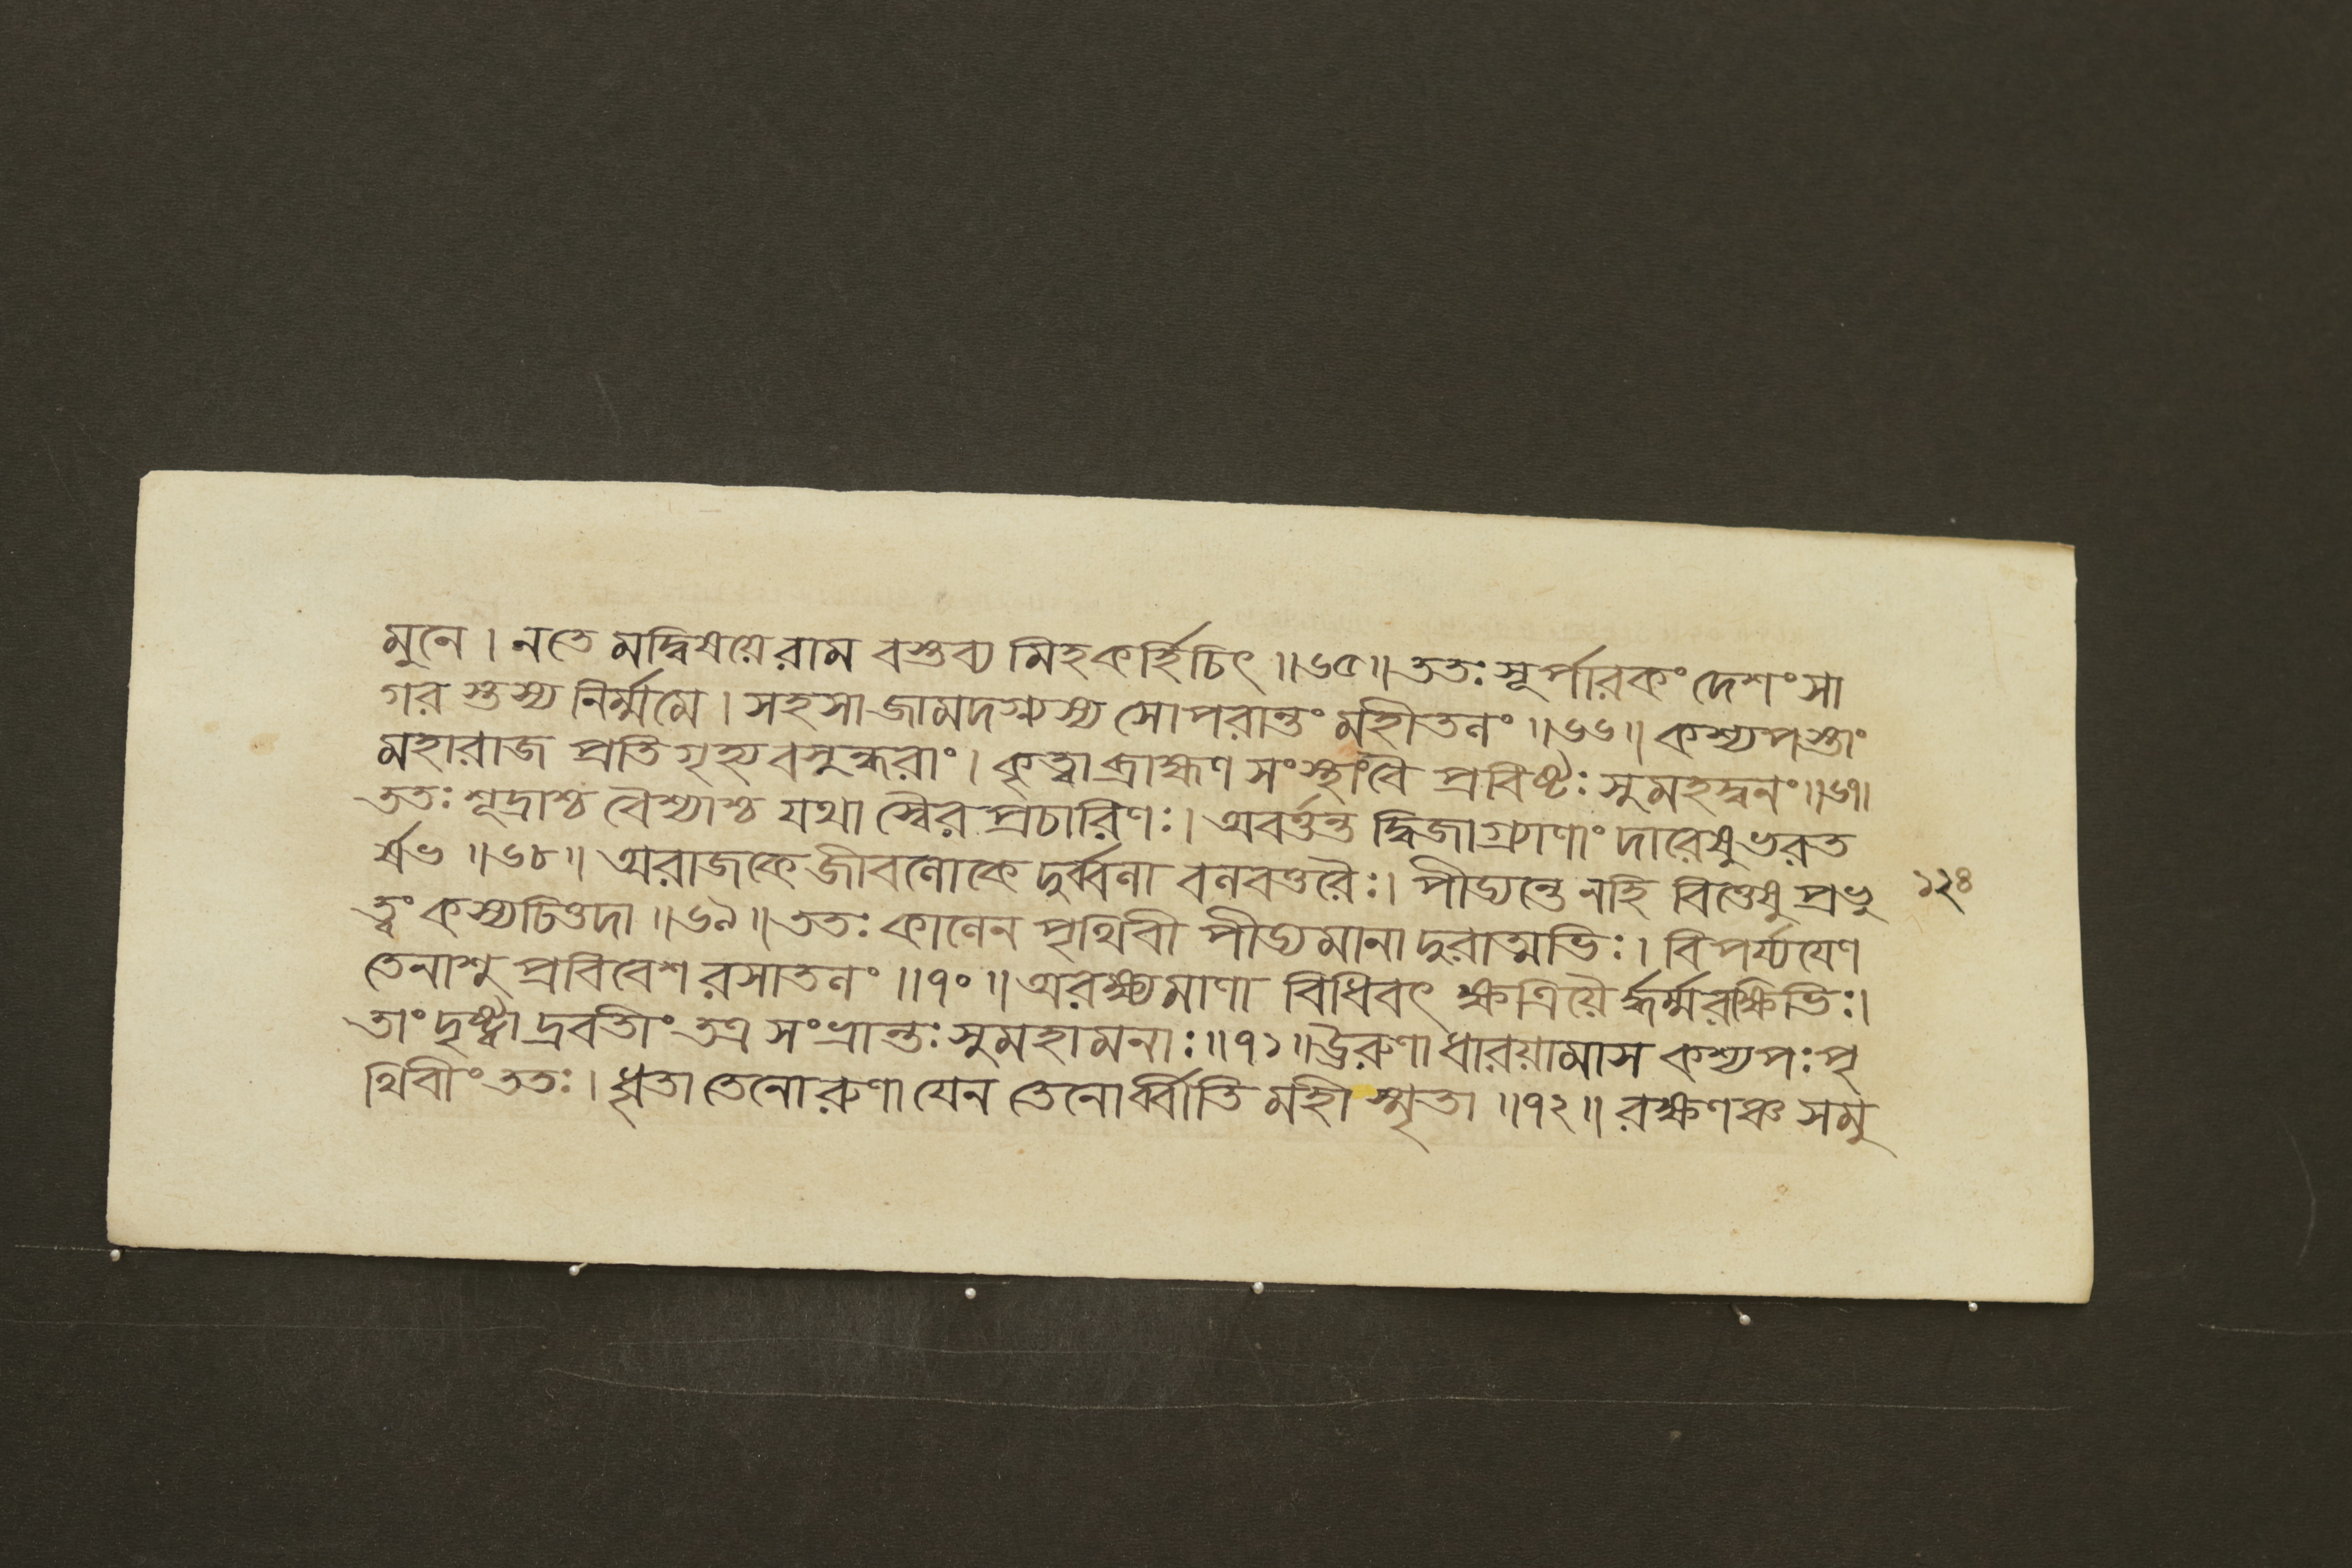 মুনে । নতে মদ্বিষয়ে রাম বস্তব্য মিহ কর্হিচিৎ ॥৬৫॥ ততঃ সূর্পারকং দেশং সা
গর স্তস্য নির্ম্মমে । সহসা জামদগ্ন্যস্য সোপরান্তং মহীতলং ॥৬৬॥ কশ্যপস্তাং
মহারাজ প্রতি গৃহ্য বসুন্ধরাং । কৃত্বা ব্রাহ্মণ সংস্থাংবৈ প্রবিষ্টঃ সুমহদ্বনং ॥৬৭॥
ততঃ শূদ্রাশ্চ বৈশ্যাশ্চ যথা স্বৈর প্রচারিণঃ । অবর্ত্তন্ত দ্বিজাগ্র্যাণাং দারেষু ভরত
র্ষভ ॥৬৮॥ অরাজকে জীবলোকে দুর্ব্বলা বলবত্তরৈঃ । পীড্যন্তে নহি বিত্তেষু প্রভু
ত্বং কস্যচিত্তদা ॥৬৯॥ ততঃ কালেন পৃথিবী পীড্যমানা দুরাত্মভিঃ । বিপর্য্যয়েণ
তেনাশু প্রবিবেশ রসাতলং ॥৭০॥ অরক্ষ্যমাণা বিধিবৎ ক্ষত্রিয়ৈ র্দ্ধর্ম্মরক্ষিভিঃ ।
তাং দৃষ্ট্বা দ্রবতীং তত্র সংভ্রান্তঃ সুমহামনাঃ ॥৭১॥ ঊরুণা ধারয়ামাস কশ্যপঃ পৃ
থিবীং ততঃ । ধৃতা তেনোরুণা যেন তেনোর্ব্বীতি মহী স্মৃতা ॥৭২॥ রক্ষণঞ্চ সমু
১২৪